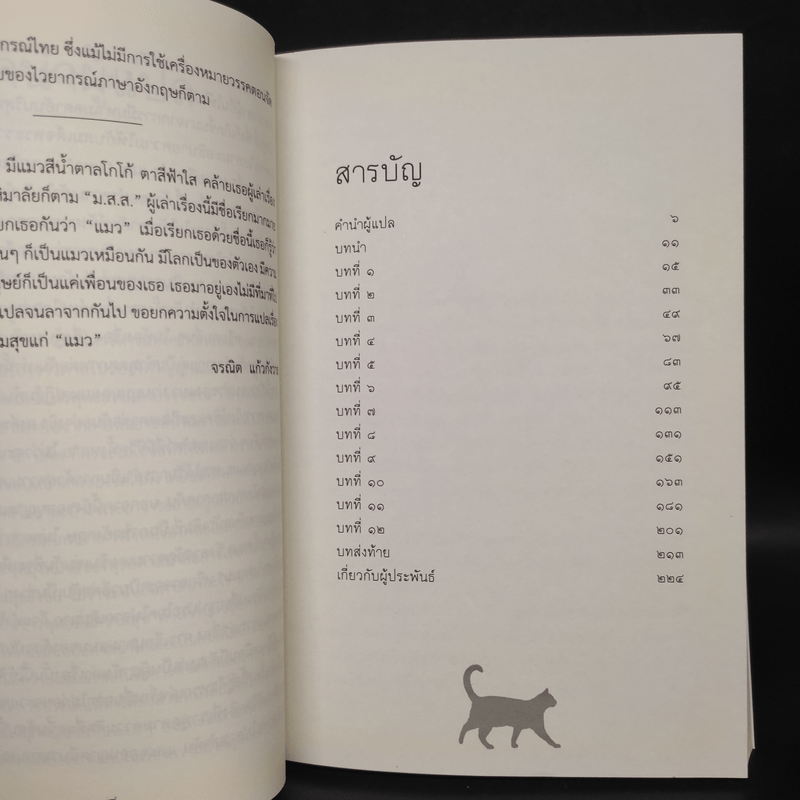 กรณ์ไทย ซึ่งแม้ไม่มีการใช้เครื่องหมายวรรคตอนจัด
ของไวยากรณ์ภาษาอังกฤษก็ตาม
มีแมวสีน้ำตาลโกโก้ ตาสีฟ้าใส คล้ายเธอผู้เล่าเรื่อง
หิมาลัยก็ตาม “ม.ส.ส.” ผู้เล่าเรื่องนี้มีชื่อเรียกมากมาย
ยกเธอกันว่า “แมว” เมื่อเรียกเธอด้วยชื่อนี้เธอก็รู้ว่า
นๆ ก็เป็นแมวเหมือนกัน มีโลกเป็นของตัวเอง มีความ
ษย์ก็เป็นแค่เพื่อนของเธอ เธอมาอยู่เองไม่มีที่มาที่ไป
แปลจนลาจากกันไป ขอยกความตั้งใจในการแปลเรื่อง
มสุขแก่ “แมว”
จรณิต แก้วกังวาล
สารบัญ
คำนำผู้แปล ๖
บทนำ ๑๑
บทที่ ๑ ๑๕
บทที่ ๒ ๓๓
บทที่ ๓ ๔๙
บทที่ ๔ ๖๗
บทที่ ๕ ๘๓
บทที่ ๖ ๙๕
บทที่ ๗ ๑๑๓
บทที่ ๘ ๑๓๑
บทที่ ๙ ๑๕๑
บทที่ ๑๐ ๑๖๓
บทที่ ๑๑ ๑๘๑
บทที่ ๑๒ ๒๐๑
บทส่งท้าย ๒๑๓
เกี่ยวกับผู้ประพันธ์ ๒๒๔